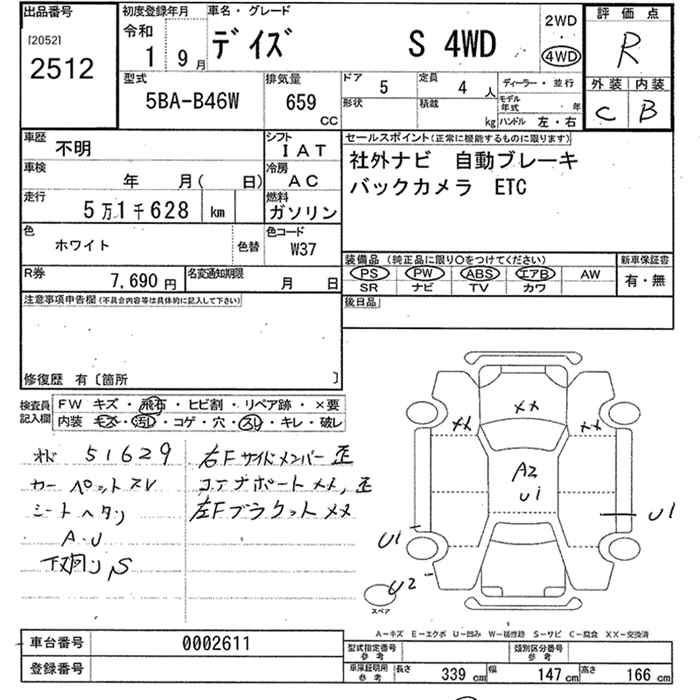 出品番号
[2052]
2512
初度登録年月
令和
1 9月
車名・グレード
デイズ S 4WD
2WD
・
4WD
評価点
R
外装 内装
C B
型式
5BA-B46W
排気量
659
CC
ドア
5
定員
4 人
形状
積載
kg
ディーラー・並行
モデル年式 年
ハンドル 左・右
車歴
不明
シフト
IAT
車検
年 月( 日)
冷房
AC
走行
5万1千628 km
燃料
ガソリン
色
ホワイト
色替
色コード
W37
R券
7,690 円
名変通知期限
月 日
セールスポイント(正常に機能するものに限ります)
社外ナビ 自動ブレーキ
バックカメラ ETC
装備品(純正品に限り○をつけてください)
PS PW ABS エアB AW
SR ナビ TV カワ
新車保証書
有・無
後日品
注意事項申告欄(不具合内容等は具体的に記入して下さい)
修復歴 有〔箇所 〕
検査員
記入欄
FW キズ・飛石・ヒビ割・リペア跡・×要
内装 キズ・汚レ・コゲ・穴・スレ・キレ・破レ
メド 51629
カーペットスレ
シートヘタリ
A・U
下廻りS
右Fサイドメンバー歪
コアサポートメメ,歪
左Fブラケットメメ
XX
XX
XX
A2
U1
U1
U1
U2
スペア
A-キズ E-エクボ U-凹み W-補修跡 S-サビ C-腐食 XX-交換済
車台番号
0002611
登録番号
型式指定番号
参考
類別区分番号
参考
車庫証明用
参考
長さ 339 cm 幅 147 cm 高さ 166 cm